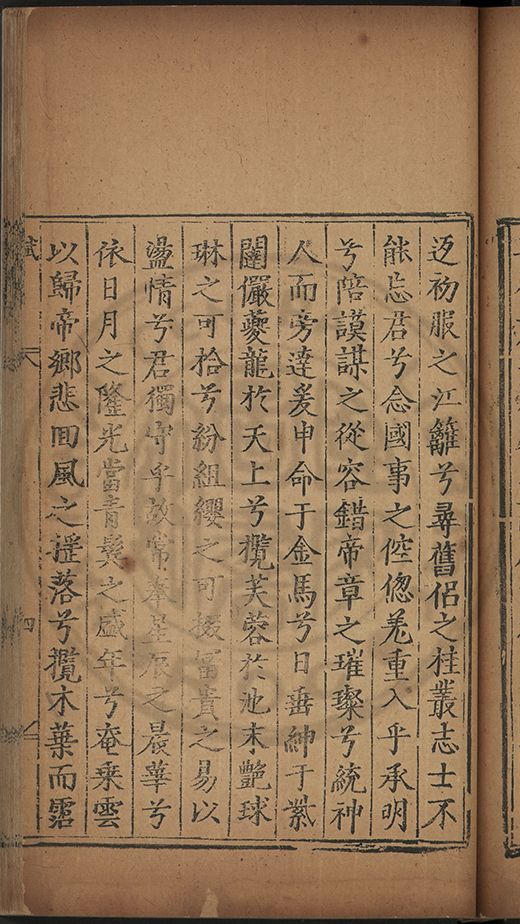 返初服之江籬兮尋舊侶之桂叢志士不
能忘君兮念國事之倥偬羌重入乎承明
兮陪謨謀之從容錯帝章之璀璨兮統神
人而旁達爰申命于金馬兮日垂紳于紫
闥儼夔龍於天上兮攬芙蓉於池末艷球
琳之可拾兮紛組纓之可掇富貴之易以
盪情兮君獨守乎故常奉星辰之晨華兮
依日月之隆光當青鬢之盛年兮奄乘雲
以歸帝鄉悲回風之搖落兮攬木葉而霑
賦
四